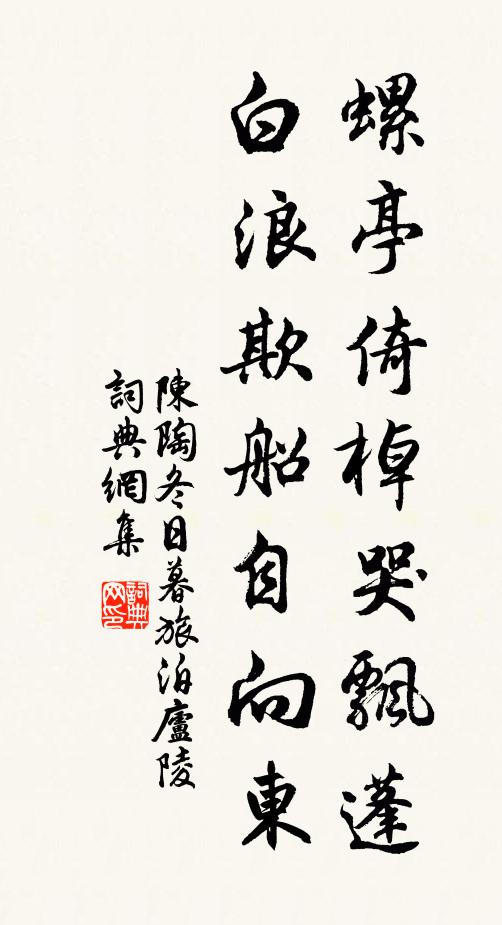 螺亭倚棹哭飄蓬
白浪欺船自向東
陳陶冬日暮旅泊廬陵
詞典網集
詞典网印